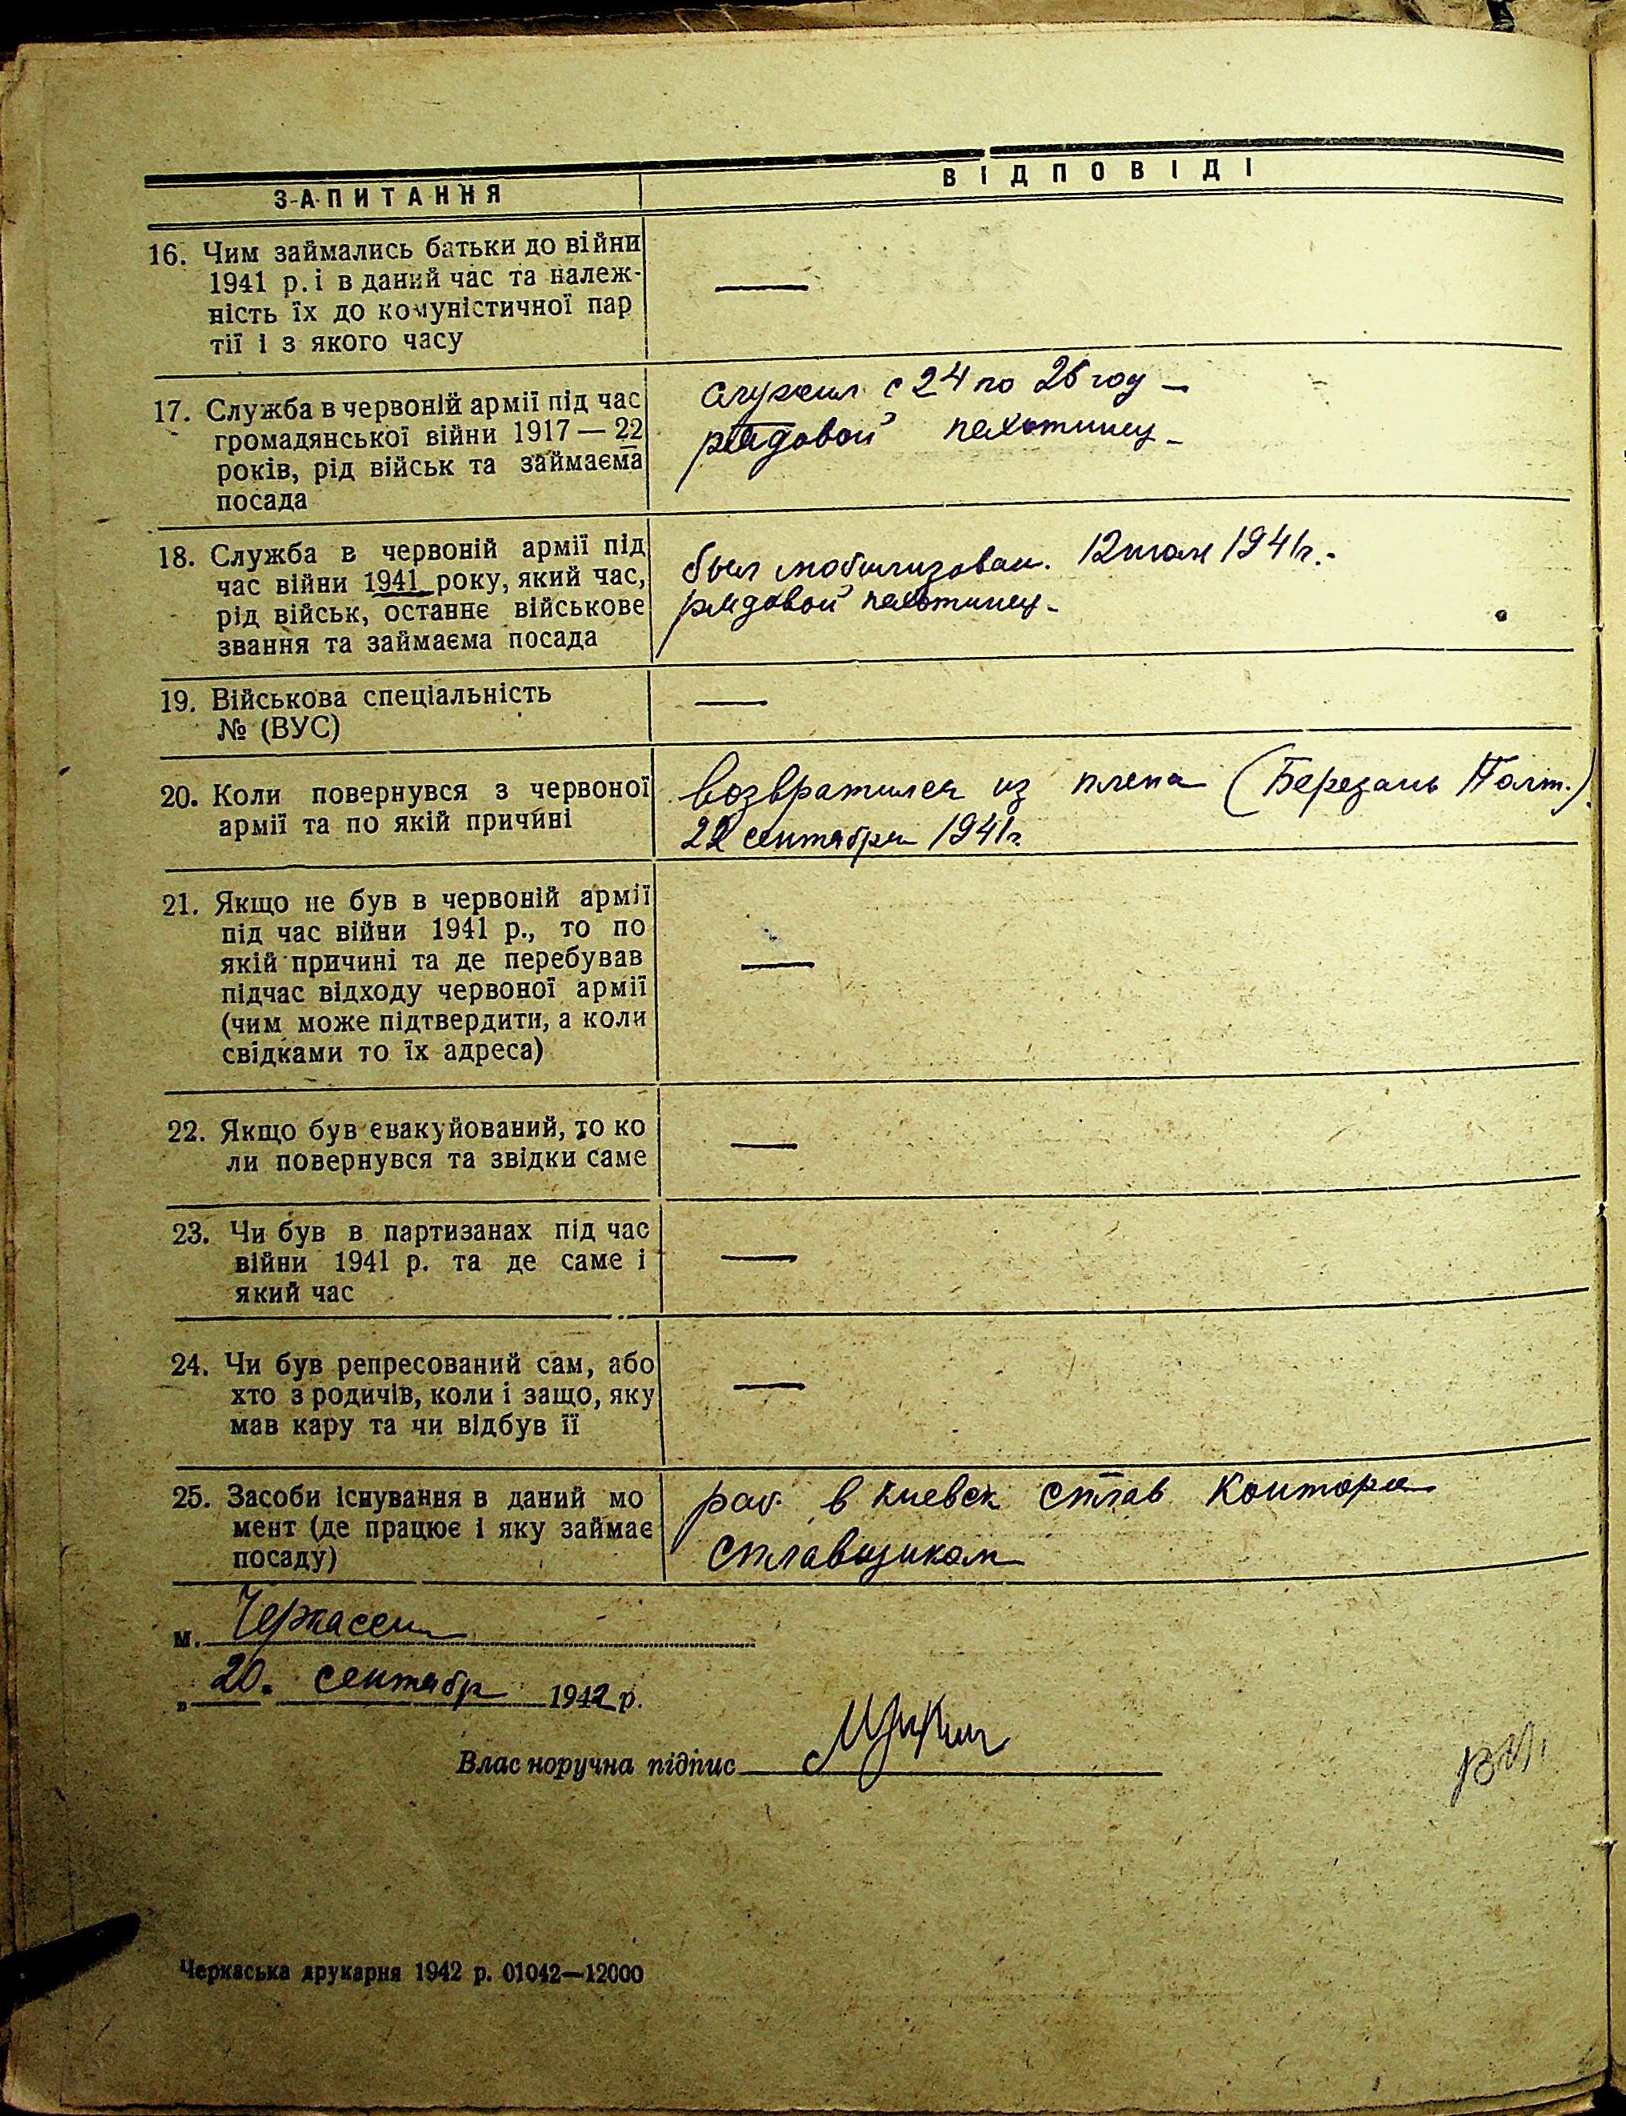 ЗАПИТАННЯ
ВІДПОВІДІ
16. Чим займались батьки до війни
1941 р. і в даний час та належ-
ність їх до комуністичної пар
тії і з якого часу
—
17. Служба в червоній армії під час
громадянської війни 1917 — 22
років, рід військ та займаєма
посада
служил с 24 по 26 году —
рядовой пехотинец —
18. Служба в червоній армії під
час війни 1941 року, який час,
рід військ, останнє військове
звання та займаєма посада
был мобилизован. 12 июля 1941 г. -
рядовой пехотинец -
19. Військова спеціальність
№ (ВУС)
—
20. Коли повернувся з червоної
армії та по якій причині
возвратился из плена (Березань Полт.)
22 сентября 1941 г.
21. Якщо не був в червоній армії
під час війни 1941 р., то по
якій причині та де перебував
підчас відходу червоної армії
(чим може підтвердити, а коли
свідками то їх адреса)
—
22. Якщо був евакуйований, то ко
ли повернувся та звідки саме
—
23. Чи був в партизанах під час
війни 1941 р. та де саме і
який час
—
24. Чи був репресований сам, або
хто з родичів, коли і защо, яку
мав кару та чи відбув її
—
25. Засоби існування в даний мо
мент (де працює і яку займає
посаду)
раб. в киевск сплав контора
сплавщиком
м. Черкассы
„ 20. сентябр 1942 р.
Власноручна підпис
Черкаська друкарня 1942 р. 01042—12000